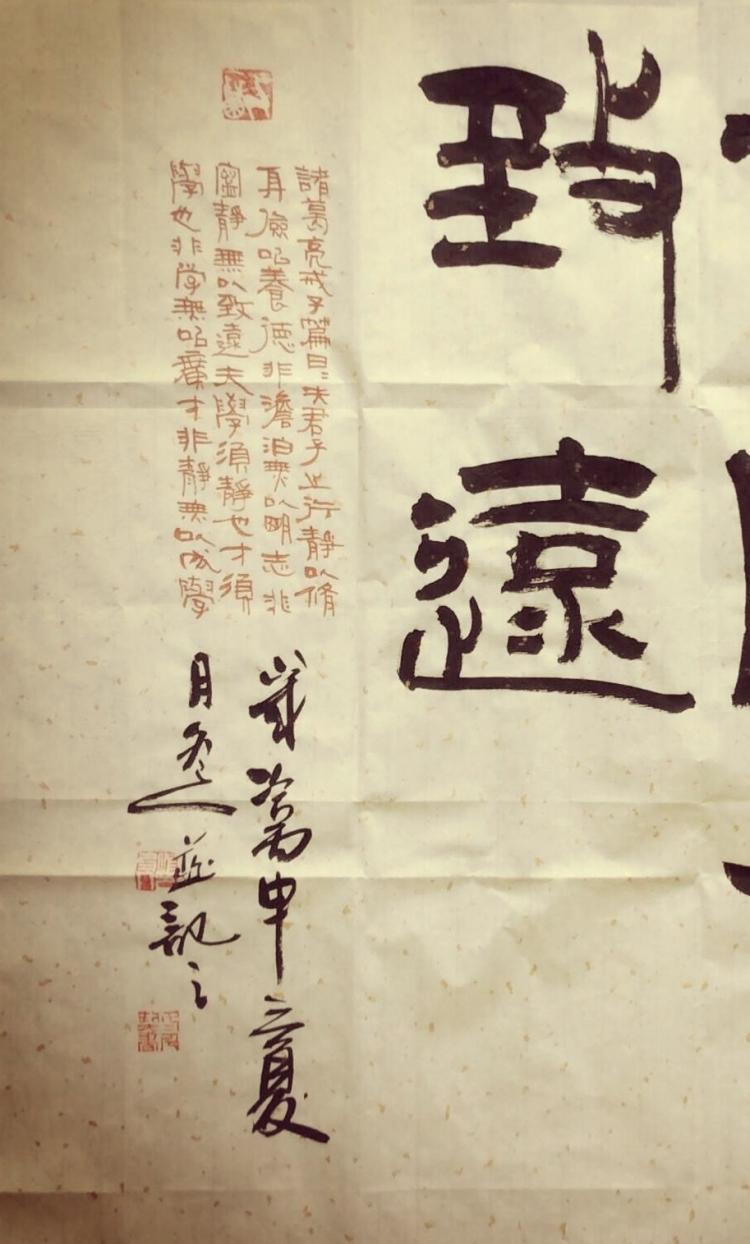 致遠
諸葛亮戒子篇曰：夫君子之行靜以脩
身儉以養德非澹泊無以明志非
寧靜無以致遠夫學須靜也才須
學也非学無以廣才非靜無以成學
歲
丙申
夏
月
並記之